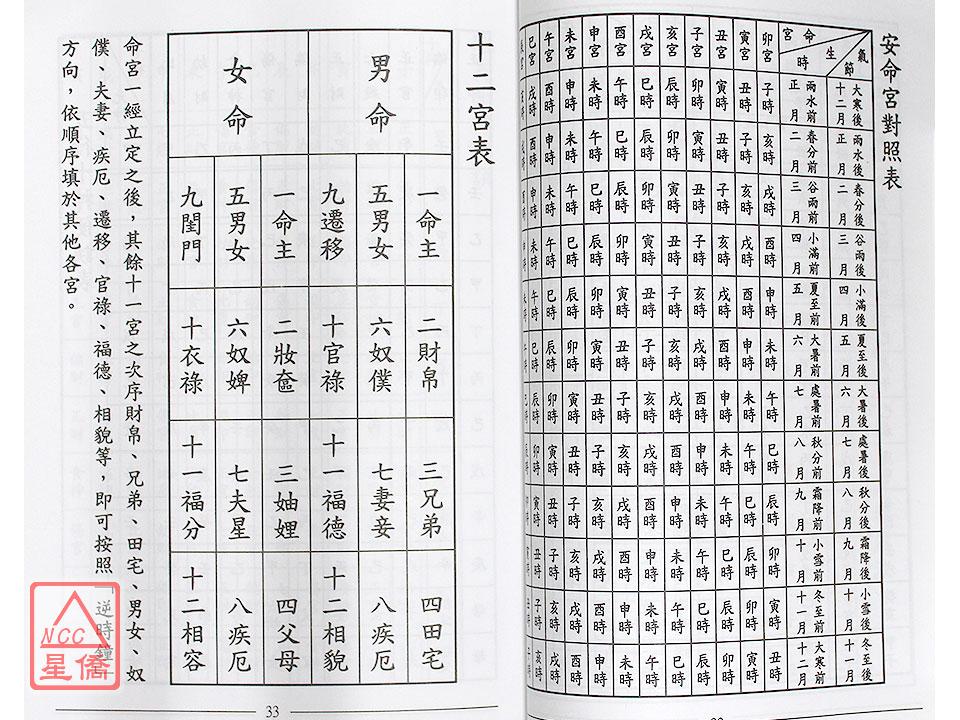 安命宮對照表
氣節 生時 命宮
大寒後十二月 雨水後正月 春分後二月 谷雨後三月 小滿後四月 夏至後五月 大暑後六月 處暑後七月 秋分後八月 霜降後九月 小雪後十月 冬至後十一月
雨水前正月 春分前二月 谷雨前三月 小滿前四月 夏至前五月 大暑前六月 處暑前七月 秋分前八月 霜降前九月 小雪前十月 冬至前十一月 大寒前十二月
卯宮 子時 亥時 戌時 酉時 申時 未時 午時 巳時 辰時 卯時 寅時 丑時
寅宮 丑時 子時 亥時 戌時 酉時 申時 未時 午時 巳時 辰時 卯時 寅時
丑宮 寅時 丑時 子時 亥時 戌時 酉時 申時 未時 午時 巳時 辰時 卯時
子宮 卯時 寅時 丑時 子時 亥時 戌時 酉時 申時 未時 午時 巳時 辰時
亥宮 辰時 卯時 寅時 丑時 子時 亥時 戌時 酉時 申時 未時 午時 巳時
戌宮 巳時 辰時 卯時 寅時 丑時 子時 亥時 戌時 酉時 申時 未時 午時
酉宮 午時 巳時 辰時 卯時 寅時 丑時 子時 亥時 戌時 酉時 申時 未時
申宮 未時 午時 巳時 辰時 卯時 寅時 丑時 子時 亥時 戌時 酉時 申時
未宮 申時 未時 午時 巳時 辰時 卯時 寅時 丑時 子時 亥時 戌時 酉時
午宮 酉時 申時 未時 午時 巳時 辰時 卯時 寅時 丑時 子時 亥時 戌時
巳宮 戌時 酉時 申時 未時 午時 巳時 辰時 卯時 寅時 丑時 子時 亥時
十二宮表
男命
一命主 二財帛 三兄弟 四田宅
五男女 六奴僕 七妻妾 八疾厄
九遷移 十官祿 十一福德 十二相貌
女命
一命主 二妝奩 三妯娌 四父母
五男女 六奴婢 七夫星 八疾厄
九閨門 十衣祿 十一福分 十二相容
命宮一經立定之後，其餘十一宮之次序財帛、兄弟、田宅、男女、奴
僕、夫妻、疾厄、遷移、官祿、福德、相貌等，即可按照「逆時鐘」
方向，依順序填於其他各宮。
33
NCC
星僑